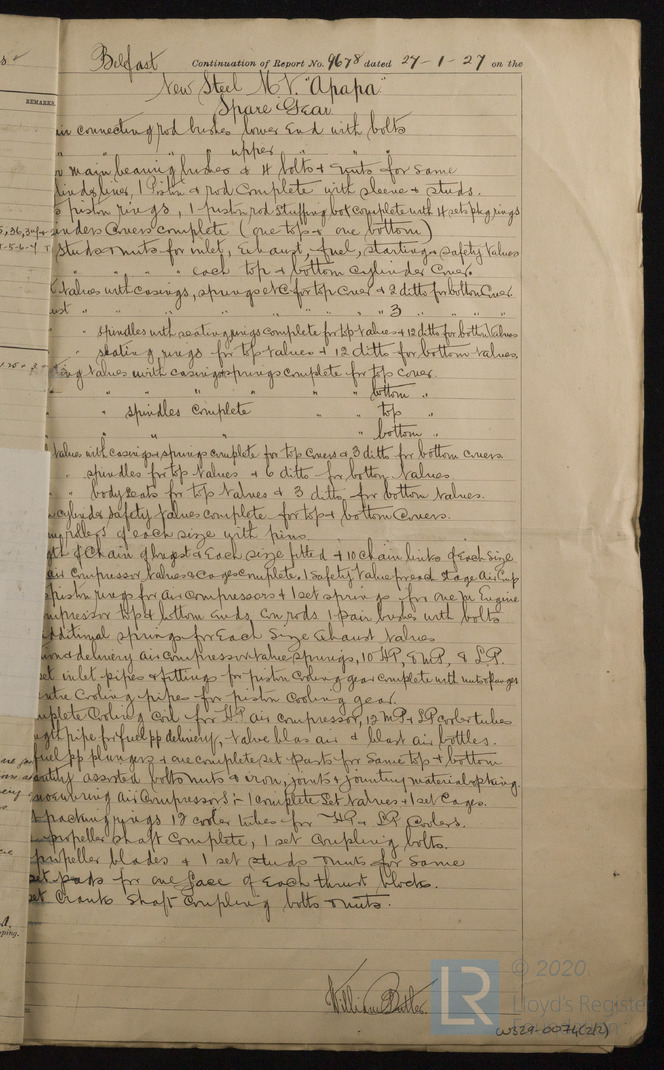 Belfast Continuation of Report No. 9678 dated 27-1-27 on the
New Steel M.V. "Apapa"
Spare Gear
connecting rod bushes lower End with bolts
" " upper " "
main bearing bushes & 4 bolts & nuts for same
liner, 1 Piston & rod Complete with sleeve & studs.
piston rings, 1 piston rod stuffing box complete with 4 sets pkg rings
Covers Complete (one top & one bottom)
studs & nuts for inlet, Exhaust, fuel, starting & safety Valves
" " " each top & bottom Cylinder Cover.
Valves with casings, springs etc for top Cover & 2 ditto for bottom Cover.
" " " " " " " 3 " "
" spindles with seating rings complete for top Valves & 12 ditto for bottom Valves
" seating rings for top Valves & 12 ditto for bottom Valves.
Valves with casings & springs complete for top cover
" " " " " bottom "
" spindles complete " " top "
" " " bottom "
Valves with casings & springs complete for top Covers & 3 ditto for bottom covers
" spindles for top Valves & 6 ditto for bottom Valves
" " body seats for top Valves & 3 ditto for bottom Valves.
cylinder safety Valves complete for top & bottom Covers.
rollers of each size with pins.
of Chain of longest & Each size fitted & 10 chain links of Each Size
air Compressor Valves & Cages Complete, 1 Safety Valve for each stage Air Comp
piston rings for air compressors & 1 set springs for one per Engine
top & bottom Ends, Con rods 1 pair bushes with bolts
additional springs for Each Size Exhaust Valves
& delivery air Compressor Valve springs, 10 HP, 8 MP, 8 LP.
set inlet pipes & fittings for piston Cooling gear complete with nuts & flanges
Cooling pipes for piston Cooling gear.
Cooling Coil for HP air compressor, 12 MP & LP cooler tubes
pipe for fuel pp delivery, Valve blast air & blast air bottles.
fuel pp plungers & one complete set parts for same top & bottom
assorted bolts & nuts & iron, joints & jointing material & pking.
Air Compressors :- 1 complete Set Valves & 1 set Cages.
packing rings 12 cooler tubes for HP & LP Coolers.
propeller shaft Complete, 1 set Coupling bolts.
propeller blades & 1 set studs & nuts for same
set pads for one face of Each thrust blocks.
set Crank Shaft Coupling bolts & nuts.
William Butler.
LR © 2020
Lloyd's Register
Foundation
W329-0074(2/2)